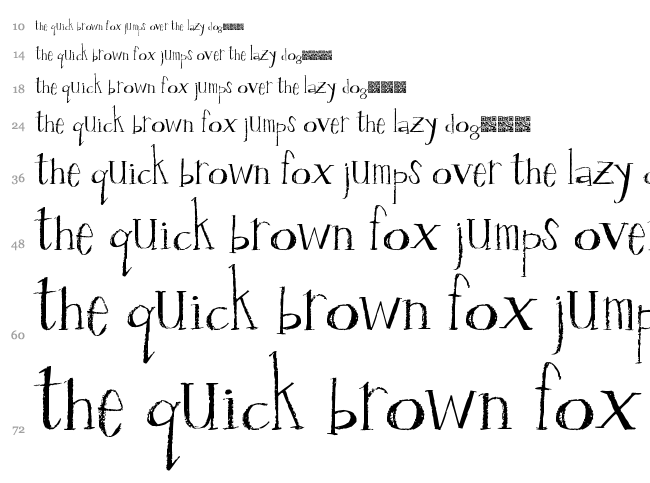 10 the quick brown fox jumps over the lazy dog
14 the quick brown fox jumps over the lazy dog
18 the quick brown fox jumps over the lazy dog
24 the quick brown fox jumps over the lazy dog
36 the quick brown fox jumps over the lazy
48 the quick brown fox jumps over
60 the quick brown fox jump
72 the quick brown fox